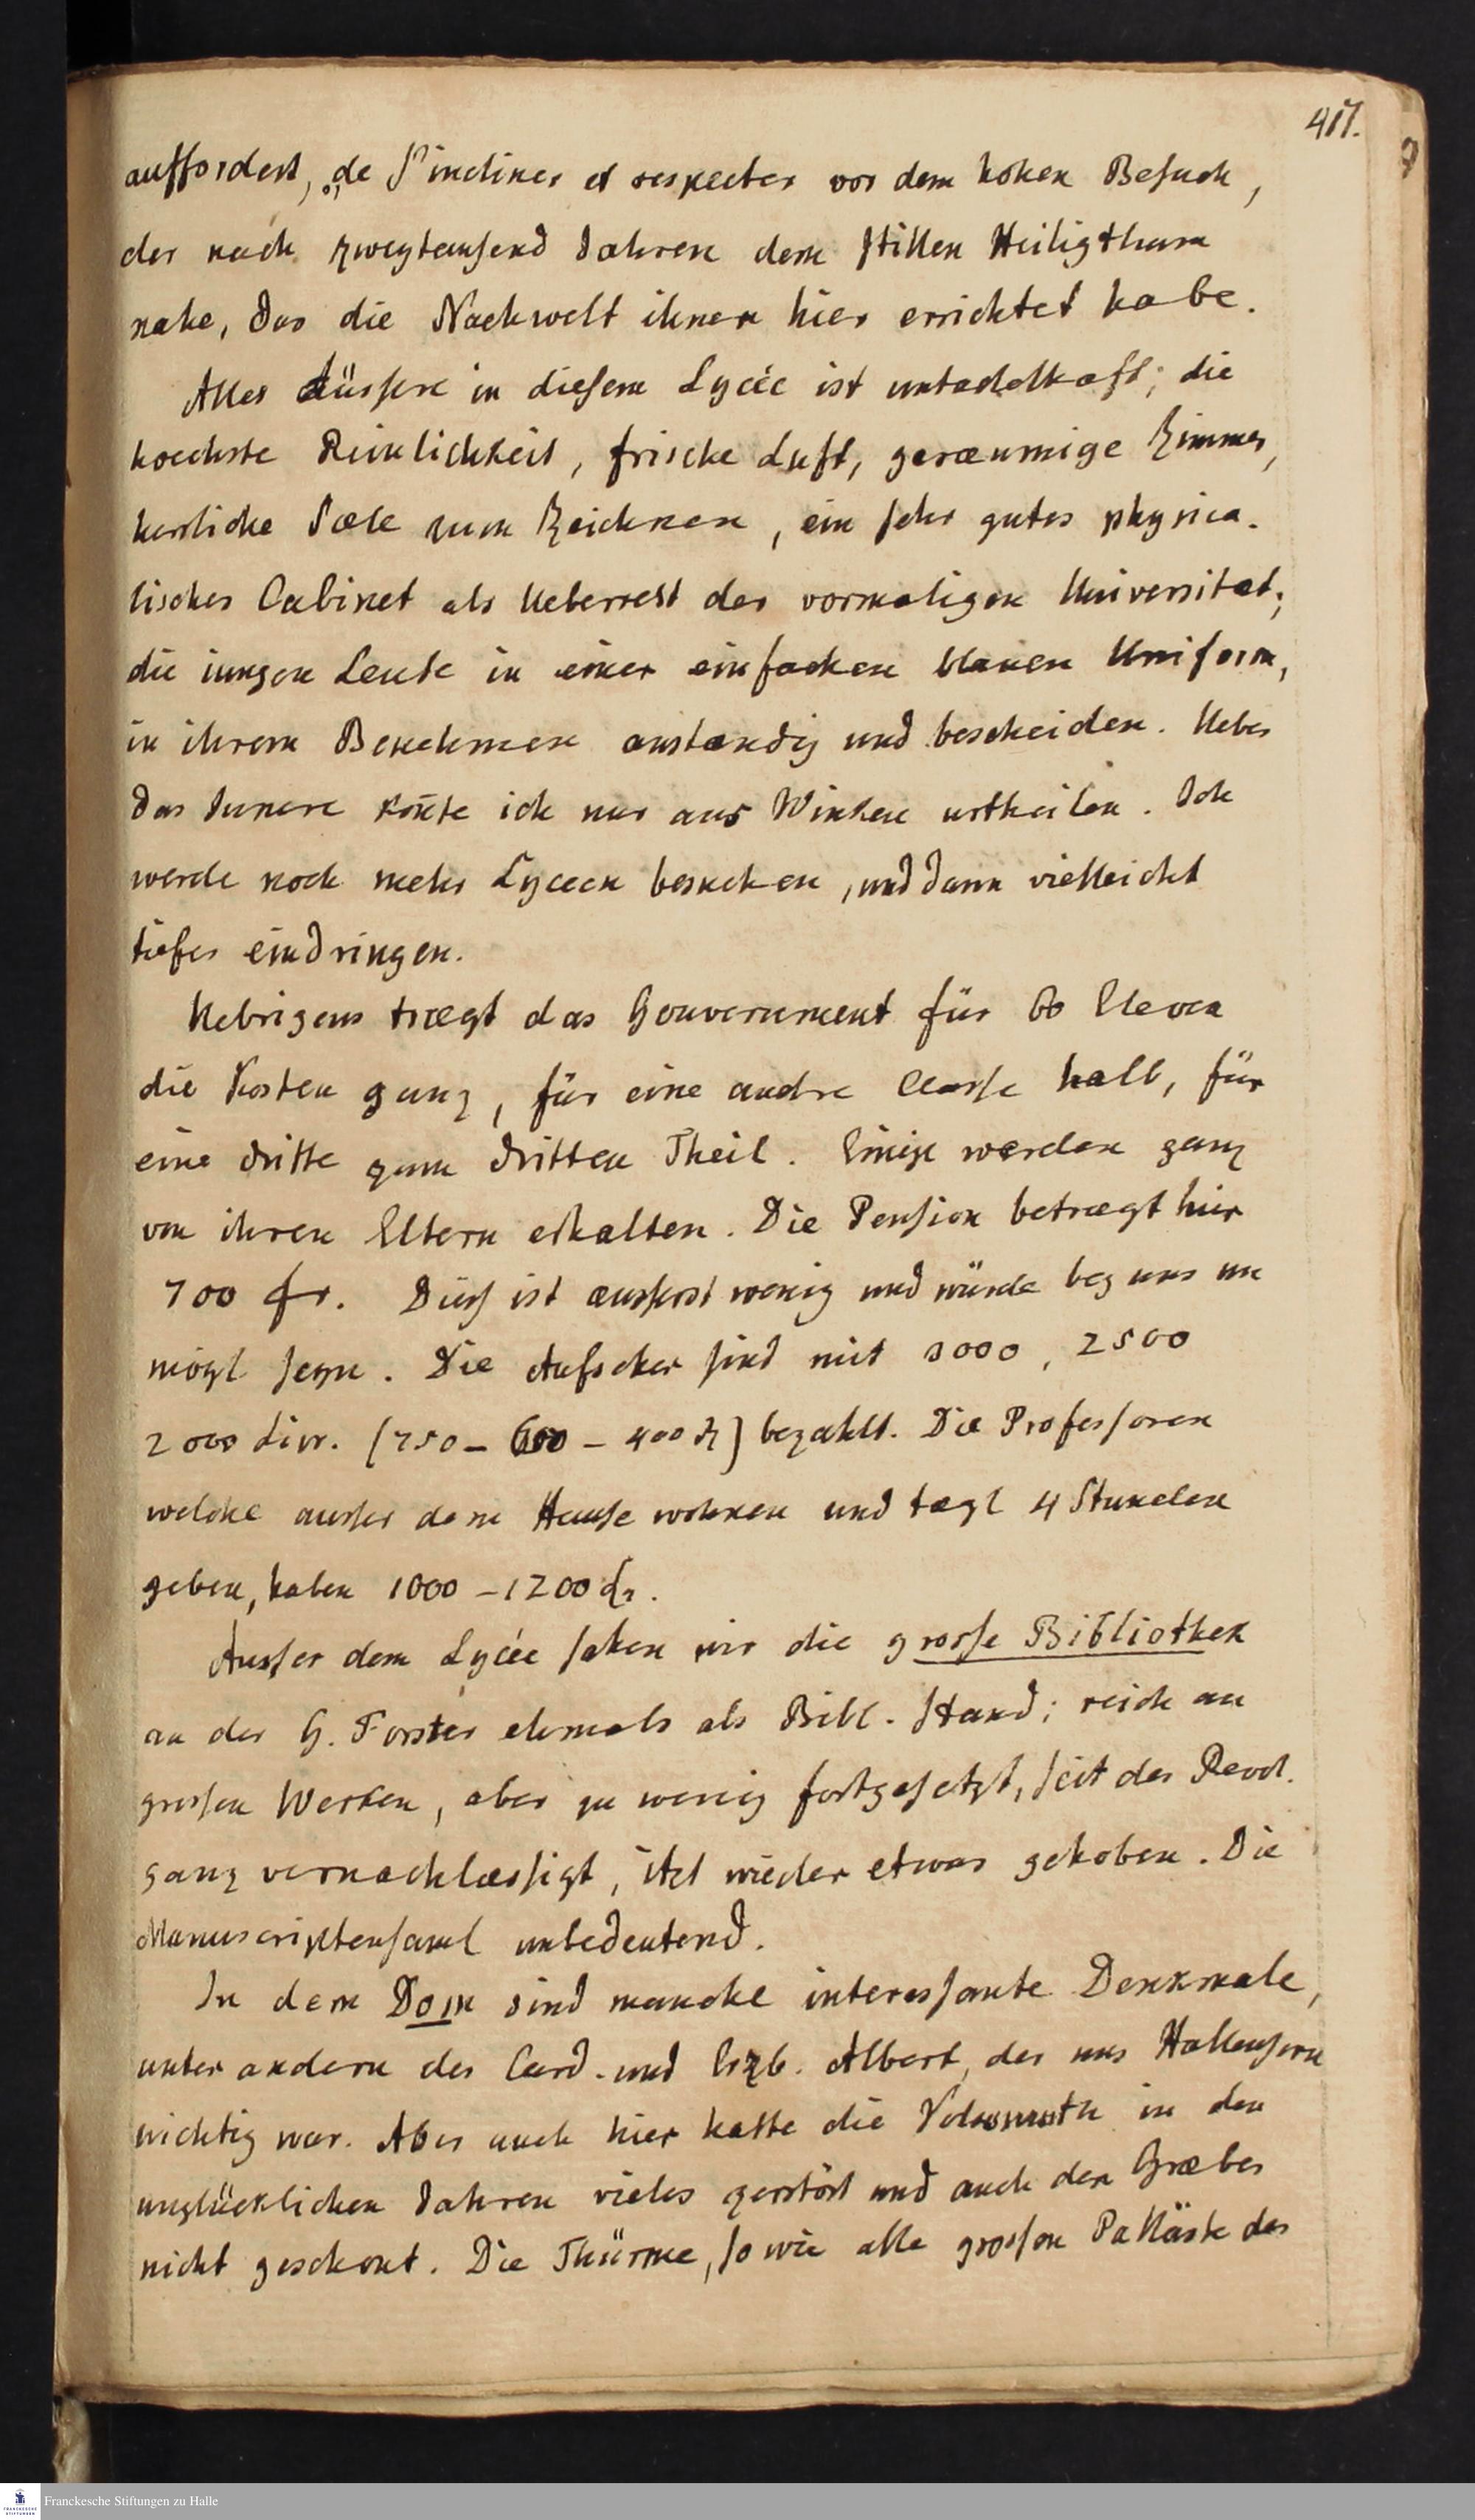 417.
auffordert, „de s'incliner et respecter vor dem hohen Besuch,
der nach zweytausend Jahren dem stillen Heiligthum
nahe, das die Nachwelt ihnen hier errichtet habe.
Alles Äussere in diesem Lycée ist untadelhaft; die
hoechste Reinlichkeit, frische Luft, geræumige Zimmer,
herrliche Sæle zum Zeichnen, ein sehr gutes physica-
lisches Cabinet als Ueberrest der vormaligen Universitæt;
die iungen Leute in einer einfachen blauen Uniform,
in ihrem Benehmen anstændig und bescheiden. Ueber
das Innere kon̄te ich nur aus Winken urtheilen. Ich
werde noch mehr Lyceen besuchen, und dann vielleicht
tiefer eindringen.
Uebrigens trægt das Gouvernement für Eleven
die Kosten ganz, für eine andre Classe halb, für
eine dritte zum dritten Theil. Einige werden ganz
von ihren Eltern erhalten. Die Pension betrægt hier
700 fr. Dies ist æusserst wenig und würde bey uns un
mögl seyn. Die Aufseher sind mit 3000, 2500
2000 Livr. (750 – 600 – 400 ) bezahlt. Die Professoren
welche ausser dem Hause wohnen und tægl 4 Stunden
geben, haben 1000 – 1200 fr.
Ausser dem Lycée sahen wir die grosse Bibliothek
an der G. Forster ehmals als Bibl. stand; reich an
grossen Werken, aber zu wenig fortgesetzt, seit der Revol.
ganz vernachlæssigt, itzt wieder etwas gehoben. Die
Manuscriptensaml unbedeutend.
In dem Dom sind manche interessante Denkmale,
unter andern des Card. und Erzb. Albert, der uns Hallensern
wichtig war. Aber auch hier hatte die in den
unglücklichen Jahren vieles zerstört und auch der Græber
nicht geschont. Die Thürme, so wie alle grossen Palläste der
Franckesche Stiftungen zu Halle